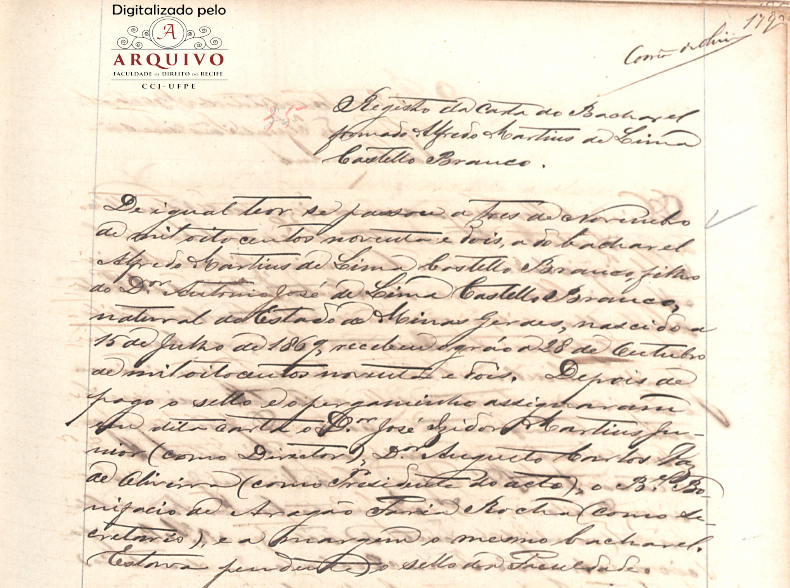 Digitalizado pelo
A
ARQUIVO
FACULDADE DE DIREITO DO RECIFE
CCI-UFPE
179
35
Registro da Carta do Bacharel
formado Alfredo Martins de Lima
Castello Branco.
De igual teor se passou a tres de Novembro
de mil oitocentos noventa e dois, a do bacharel
Alfredo Martins de Lima Castello Branco, filho
do Dr. Antonio José de Lima Castello Branco,
natural do Estado de Minas Geraes, nascido a
15 de Julho de 1869, recebeu o gráo a 28 de Outubro
de mil oitocentos noventa e dois. Depois de
pago o sello e o pergaminho assignaram
em dita carta o Dr. José Izidoro Martins Ju-
nior (como Director), Dr. Augusto Carlos Vaz
de Oliveira (como Presidente do acto), o Bel. Bo-
nifacio de Aragão Faria Rocha (como se-
cretario), e a margem o mesmo bacharel.
Estava pendente o sello da Faculdade.